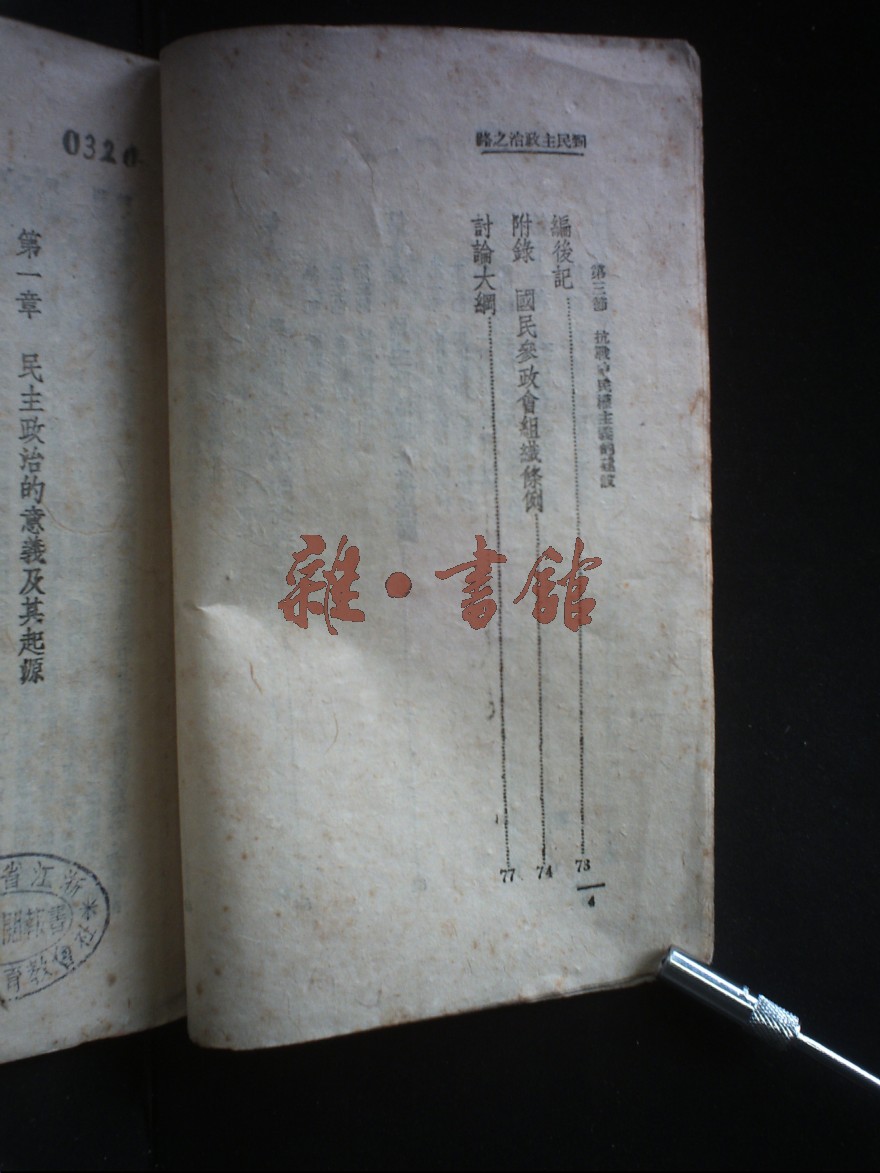 到民主政治之路
第三節　抗戰中民權主義的建設
編後記……73
附錄　國民參政會組織條例……74
討論大綱……77
4
雜·書館
0320
第一章　民主政治的意義及其起源
浙江省
書報
教育